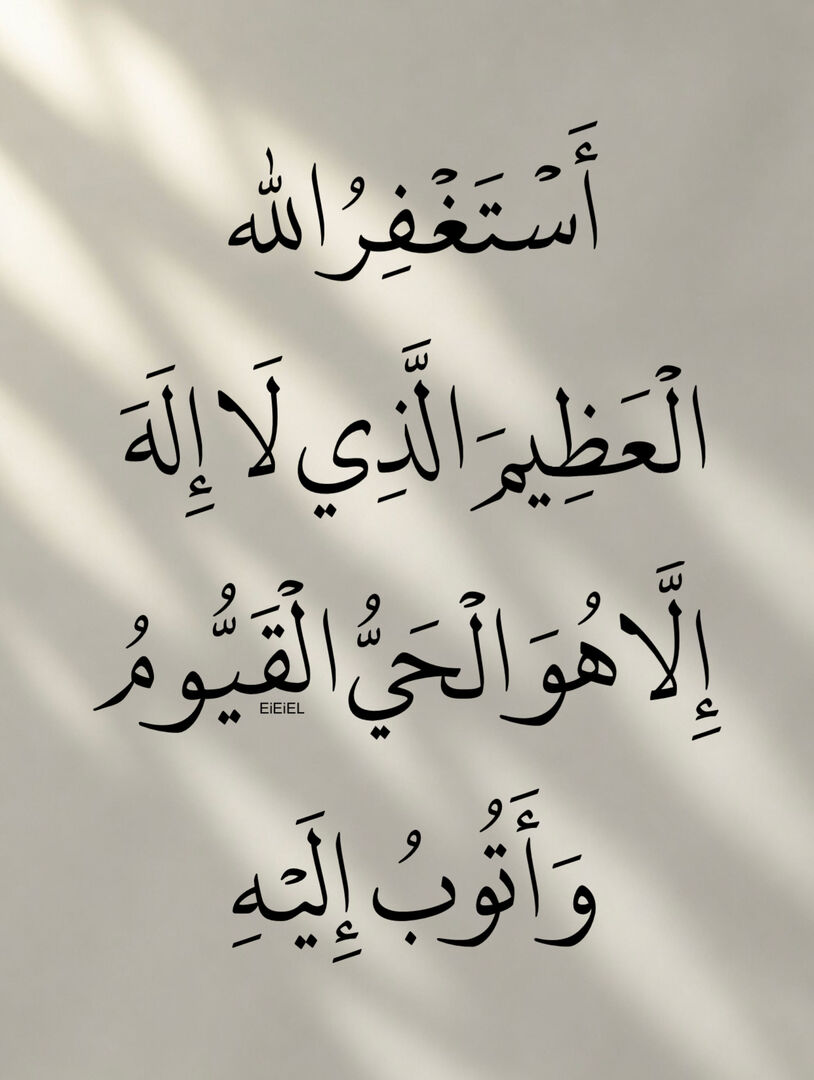 أَسْتَغْفِرُ الله
الْعَظِيمَ الَّذِي لَا إِلَهَ
إِلَّا هُوَ الْحَيُّ الْقَيُّومُ
EiEiEL
وَأَتُوبُ إِلَيْهِ